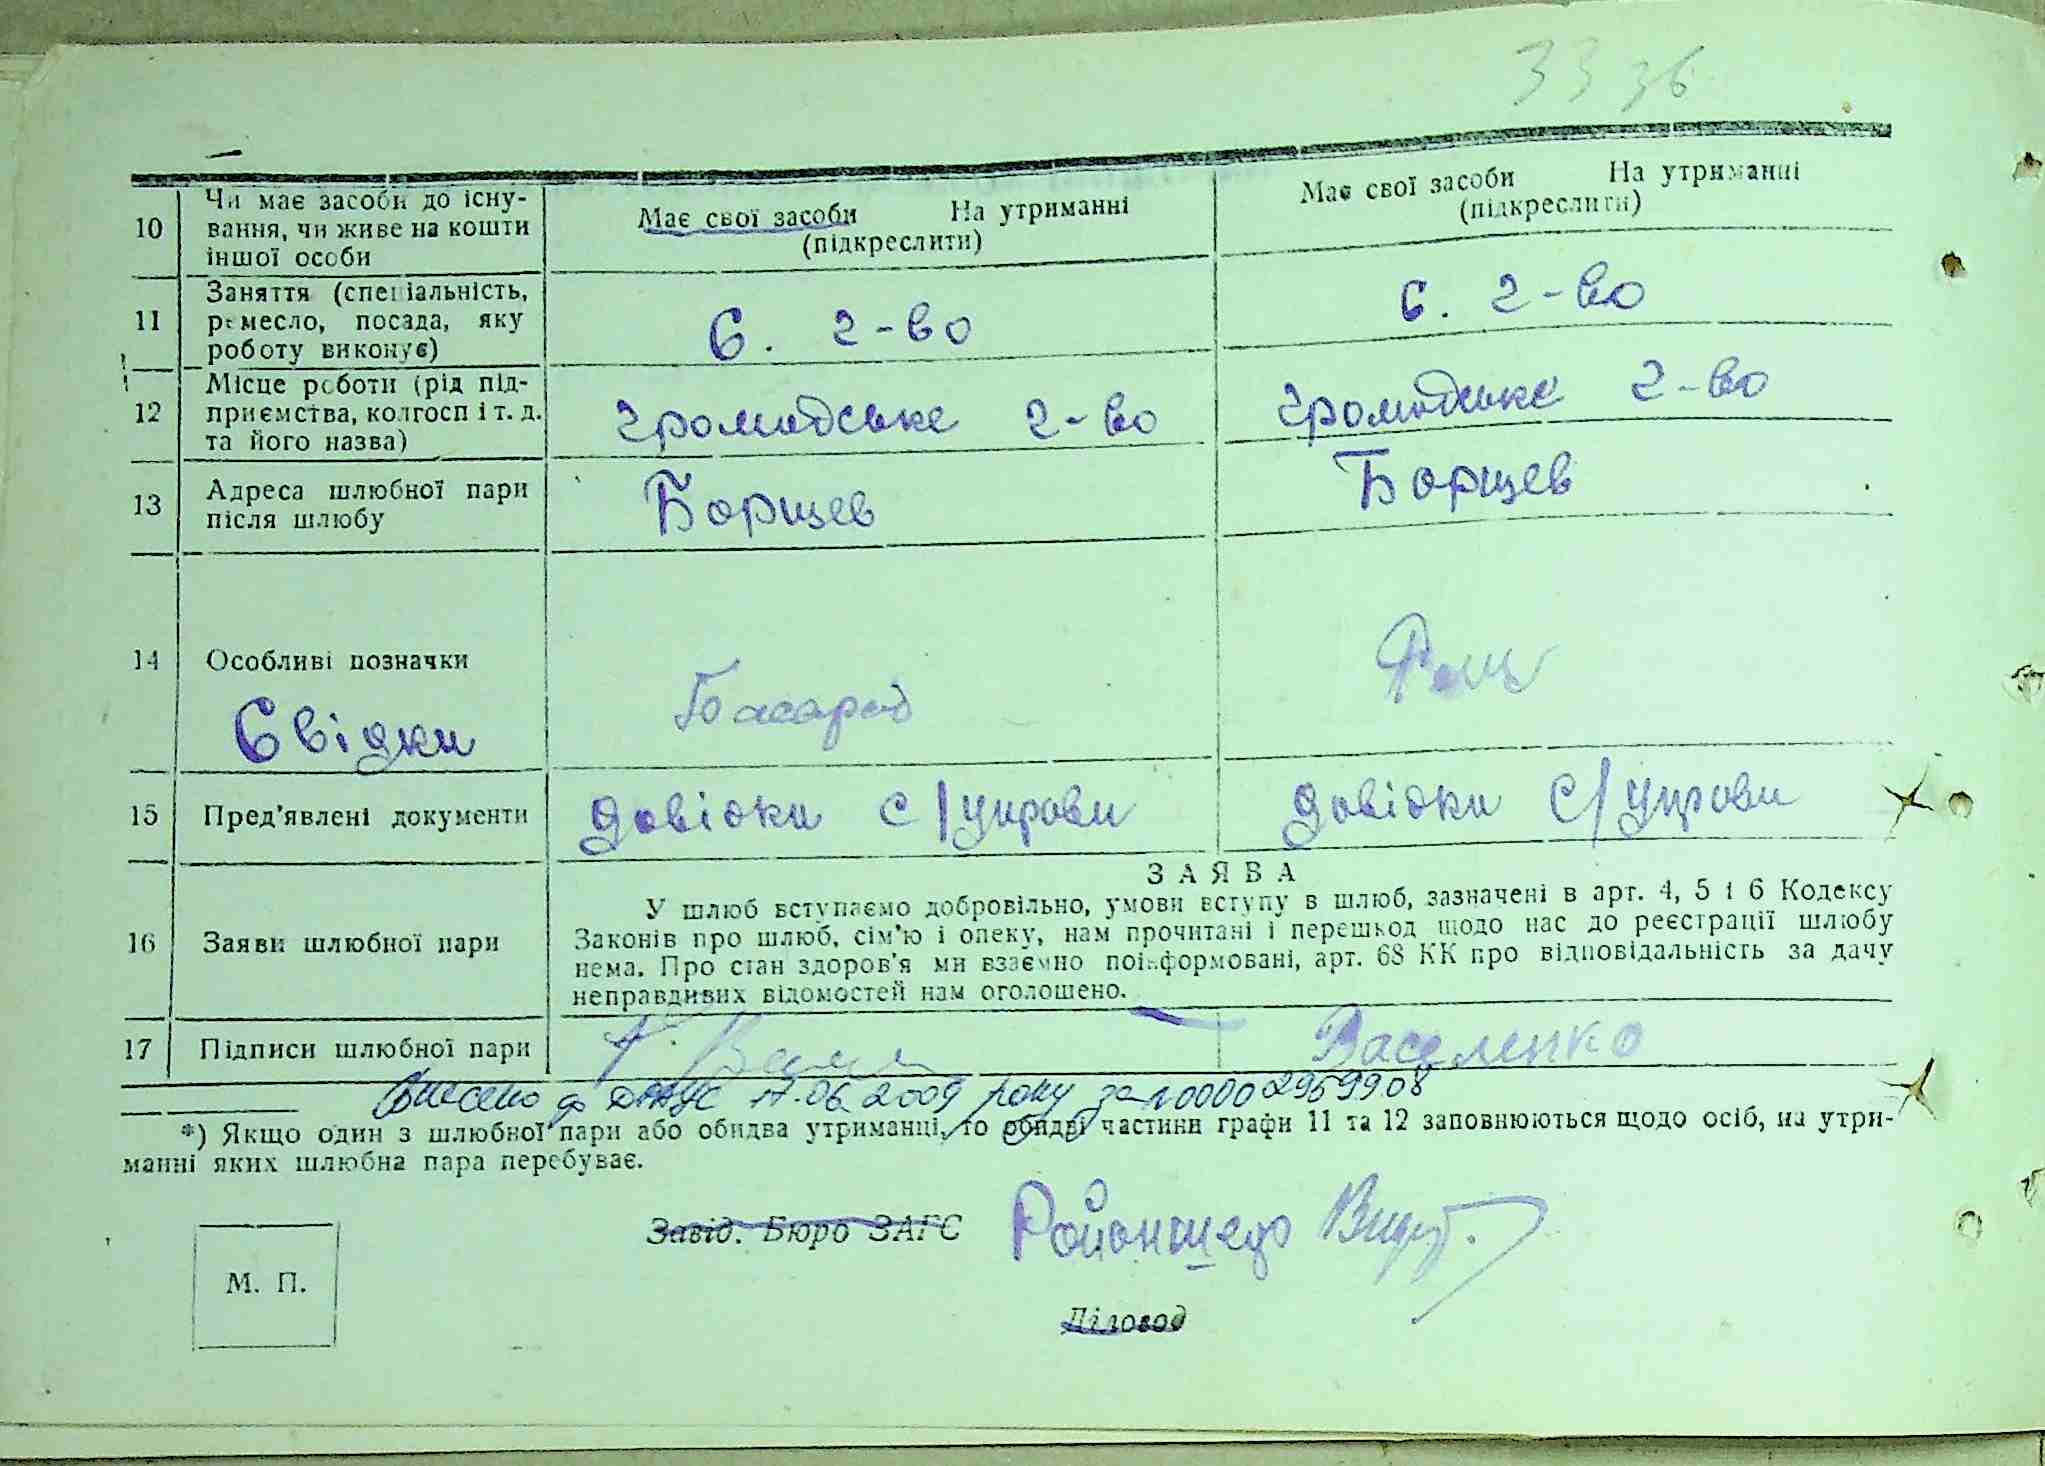 33 36
10
Чи має засоби до існу-
вання, чи живе на кошти
іншої особи
Має свої засоби На утриманні
(підкреслити)
Має свої засоби На утриманні
(підкреслити)
11
Заняття (спеціальність,
ремесло, посада, яку
роботу виконує)
С. г-во
С. г-во
12
Місце роботи (рід під-
приємства, колгосп і т. д.
та його назва)
громадське г-во
громадське г-во
13
Адреса шлюбної пари
після шлюбу
Борщев
Борщев
14
Особливі позначки
Свідки
15
Пред'явлені документи
довідки с/управи
довідки с/управи
16
Заяви шлюбної пари
ЗАЯВА
У шлюб вступаємо добровільно, умови вступу в шлюб, зазначені в арт. 4, 5 і 6 Кодексу
Законів про шлюб, сім'ю і опеку, нам прочитані і перешкод щодо нас до реєстрації шлюбу
нема. Про стан здоров'я ми взаємно поінформовані, арт. 68 КК про відповідальність за дачу
неправдивих відомостей нам оголошено.
17
Підписи шлюбної пари
Васеленко
Внесено до ДРАЦС 17.06.2009 року за 00002959908
*) Якщо один з шлюбної пари або обидва утриманці, то обидві частини графи 11 та 12 заповнюються щодо осіб, на утри-
манні яких шлюбна пара перебуває.
Завід. Бюро ЗАГС
М. П.
Діловод